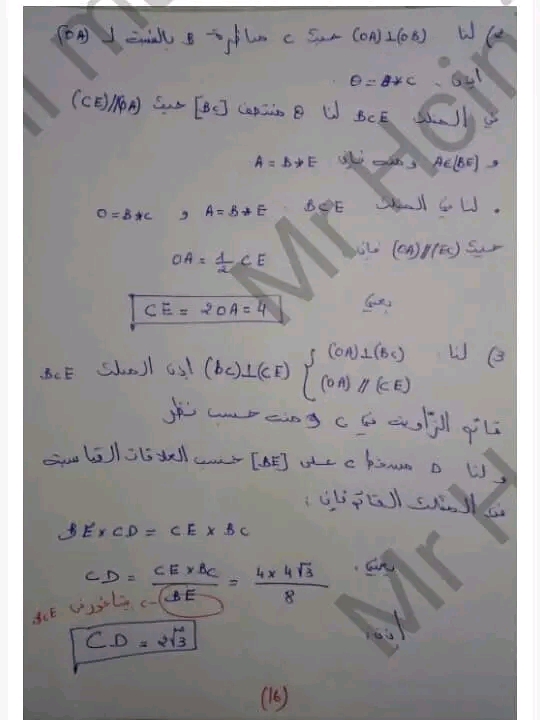 2) لنا (OA)⊥(OB) حيث C مناظرة B بالنسبة لـ (OA)
إذن O=B*C
في المثلث BCE لنا O منتصف [BC] حيث (CE)//(OA)
و A∈(BE) ومنه فإن A=B*E
• لنا في المثلث BCE A=B*E و O=B*C
حيث (OA)//(EC) فإن OA=1/2 CE
يعني CE = 2OA = 4
3) لنا { (OA)⊥(BC) (OA)//(CE) إذن (BC)⊥(CE) المثلث BCE
قائم الزّاوية في C ومنه حسب
ولنا D مسقط C على [BE] حسب العلاقات القياسية
في المثلث القائم فإن:
BE×CD = CE×BC
يعني CD = CE×BC / BE = 4×4√3 / 8
BCE
إذن: CD = 2√3
(16)
Mr H
Mr Hcin